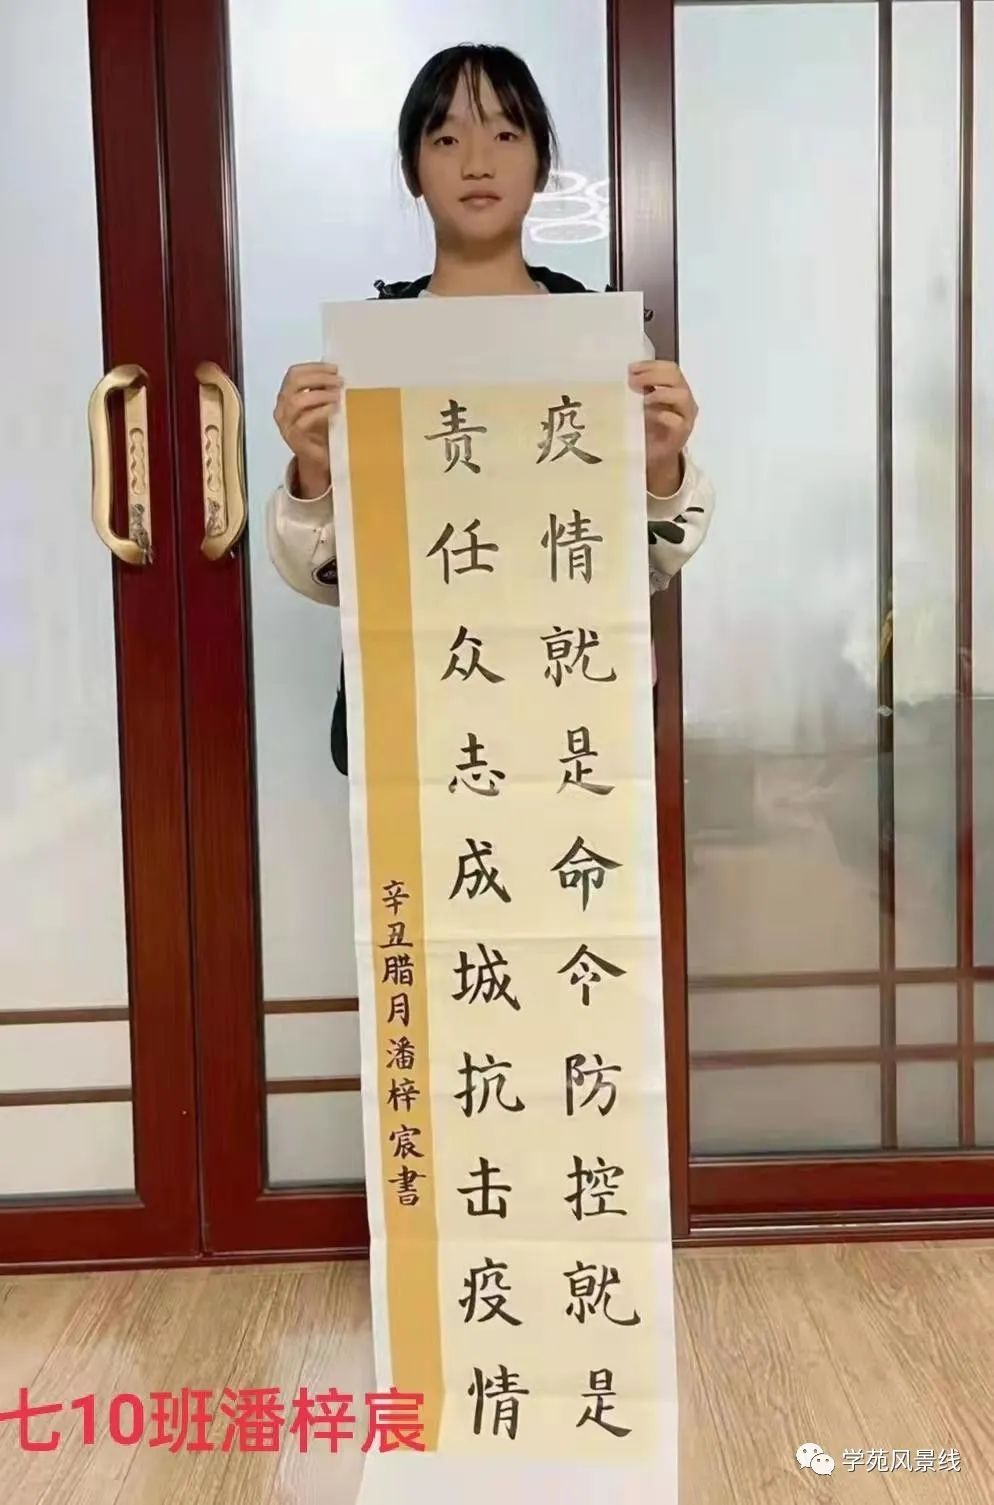 疫情就是命令防控就是
责任众志成城抗击疫情
辛丑腊月潘梓宸書
七10班潘梓宸
学苑风景线